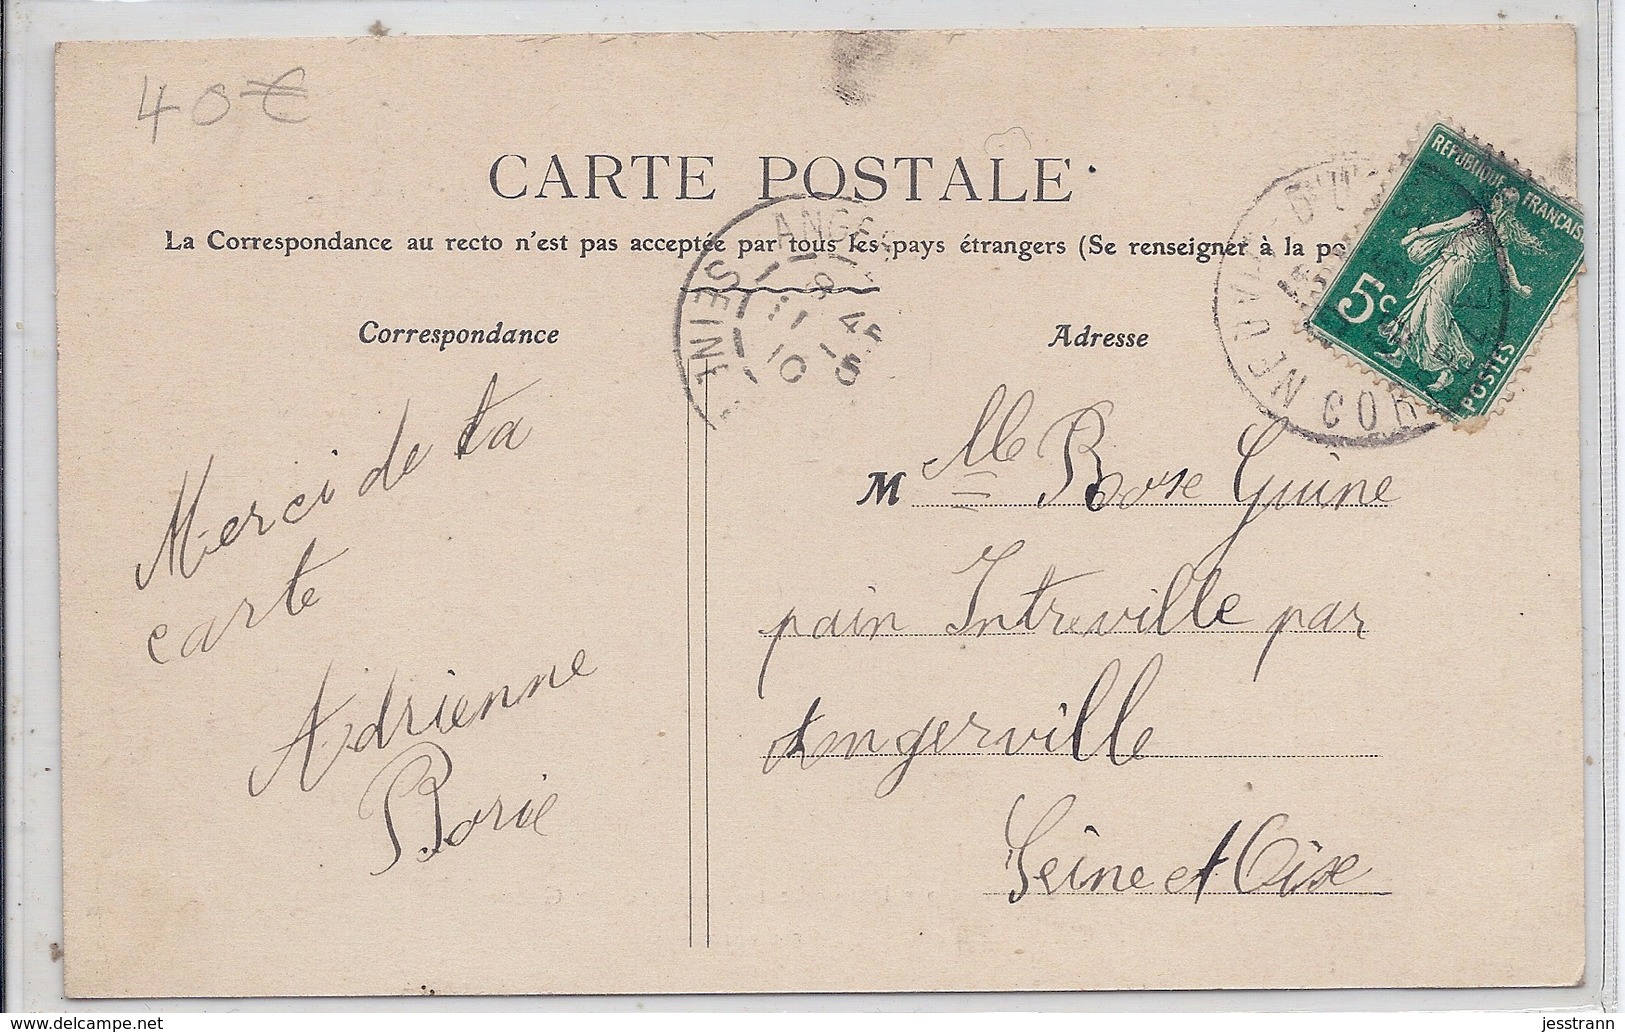 40€
CARTE POSTALE
La Correspondance au recto n'est pas acceptée par tous les pays étrangers (Se renseigner à la po
Correspondance
Adresse
ANGE
SEINE
9 45
10 5
REPUBLIQUE FRANCAISE
5c
POSTES
Merci de ta
carte
Adrienne
Borie
M lle Rose Guine
pain Intreville par
Angerville
Seine et Oise
delcampe.net
jesstrann